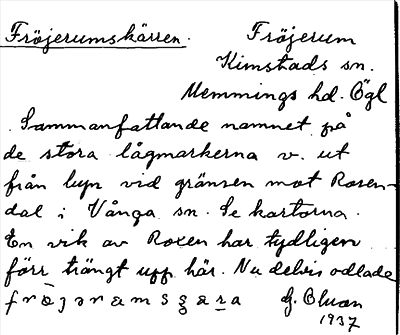 Fröjerumskärren. Fröjerum
Kimstads sn.
Memmings hd. Ögl
Sammanfattande namnet på
de stora lågmarkerna v. ut
från byn vid gränsen mot Rosen-
dal i Vånga sn. Se kartorna.
En vik av Roxen har tydligen
förr trängt upp här. Nu delvis odlade
G. Ekman
1937